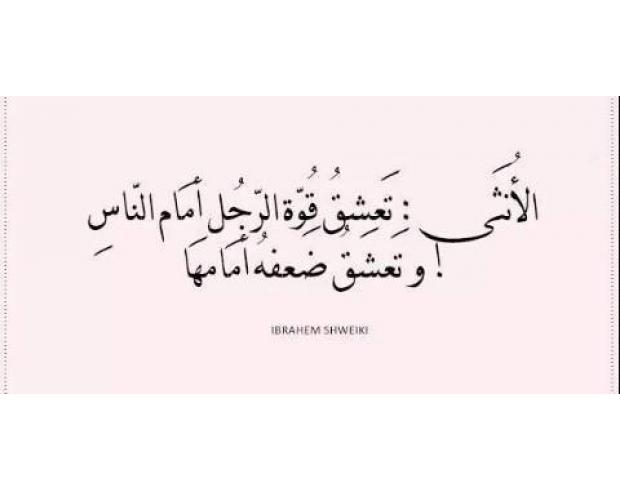 الأُنثَى : تَعشِقُ قُوّة الرّجُل أمَام النّاسِ
! و تعشقُ ضعفهُ أمَامهَا
IBRAHEM SHWEIKI